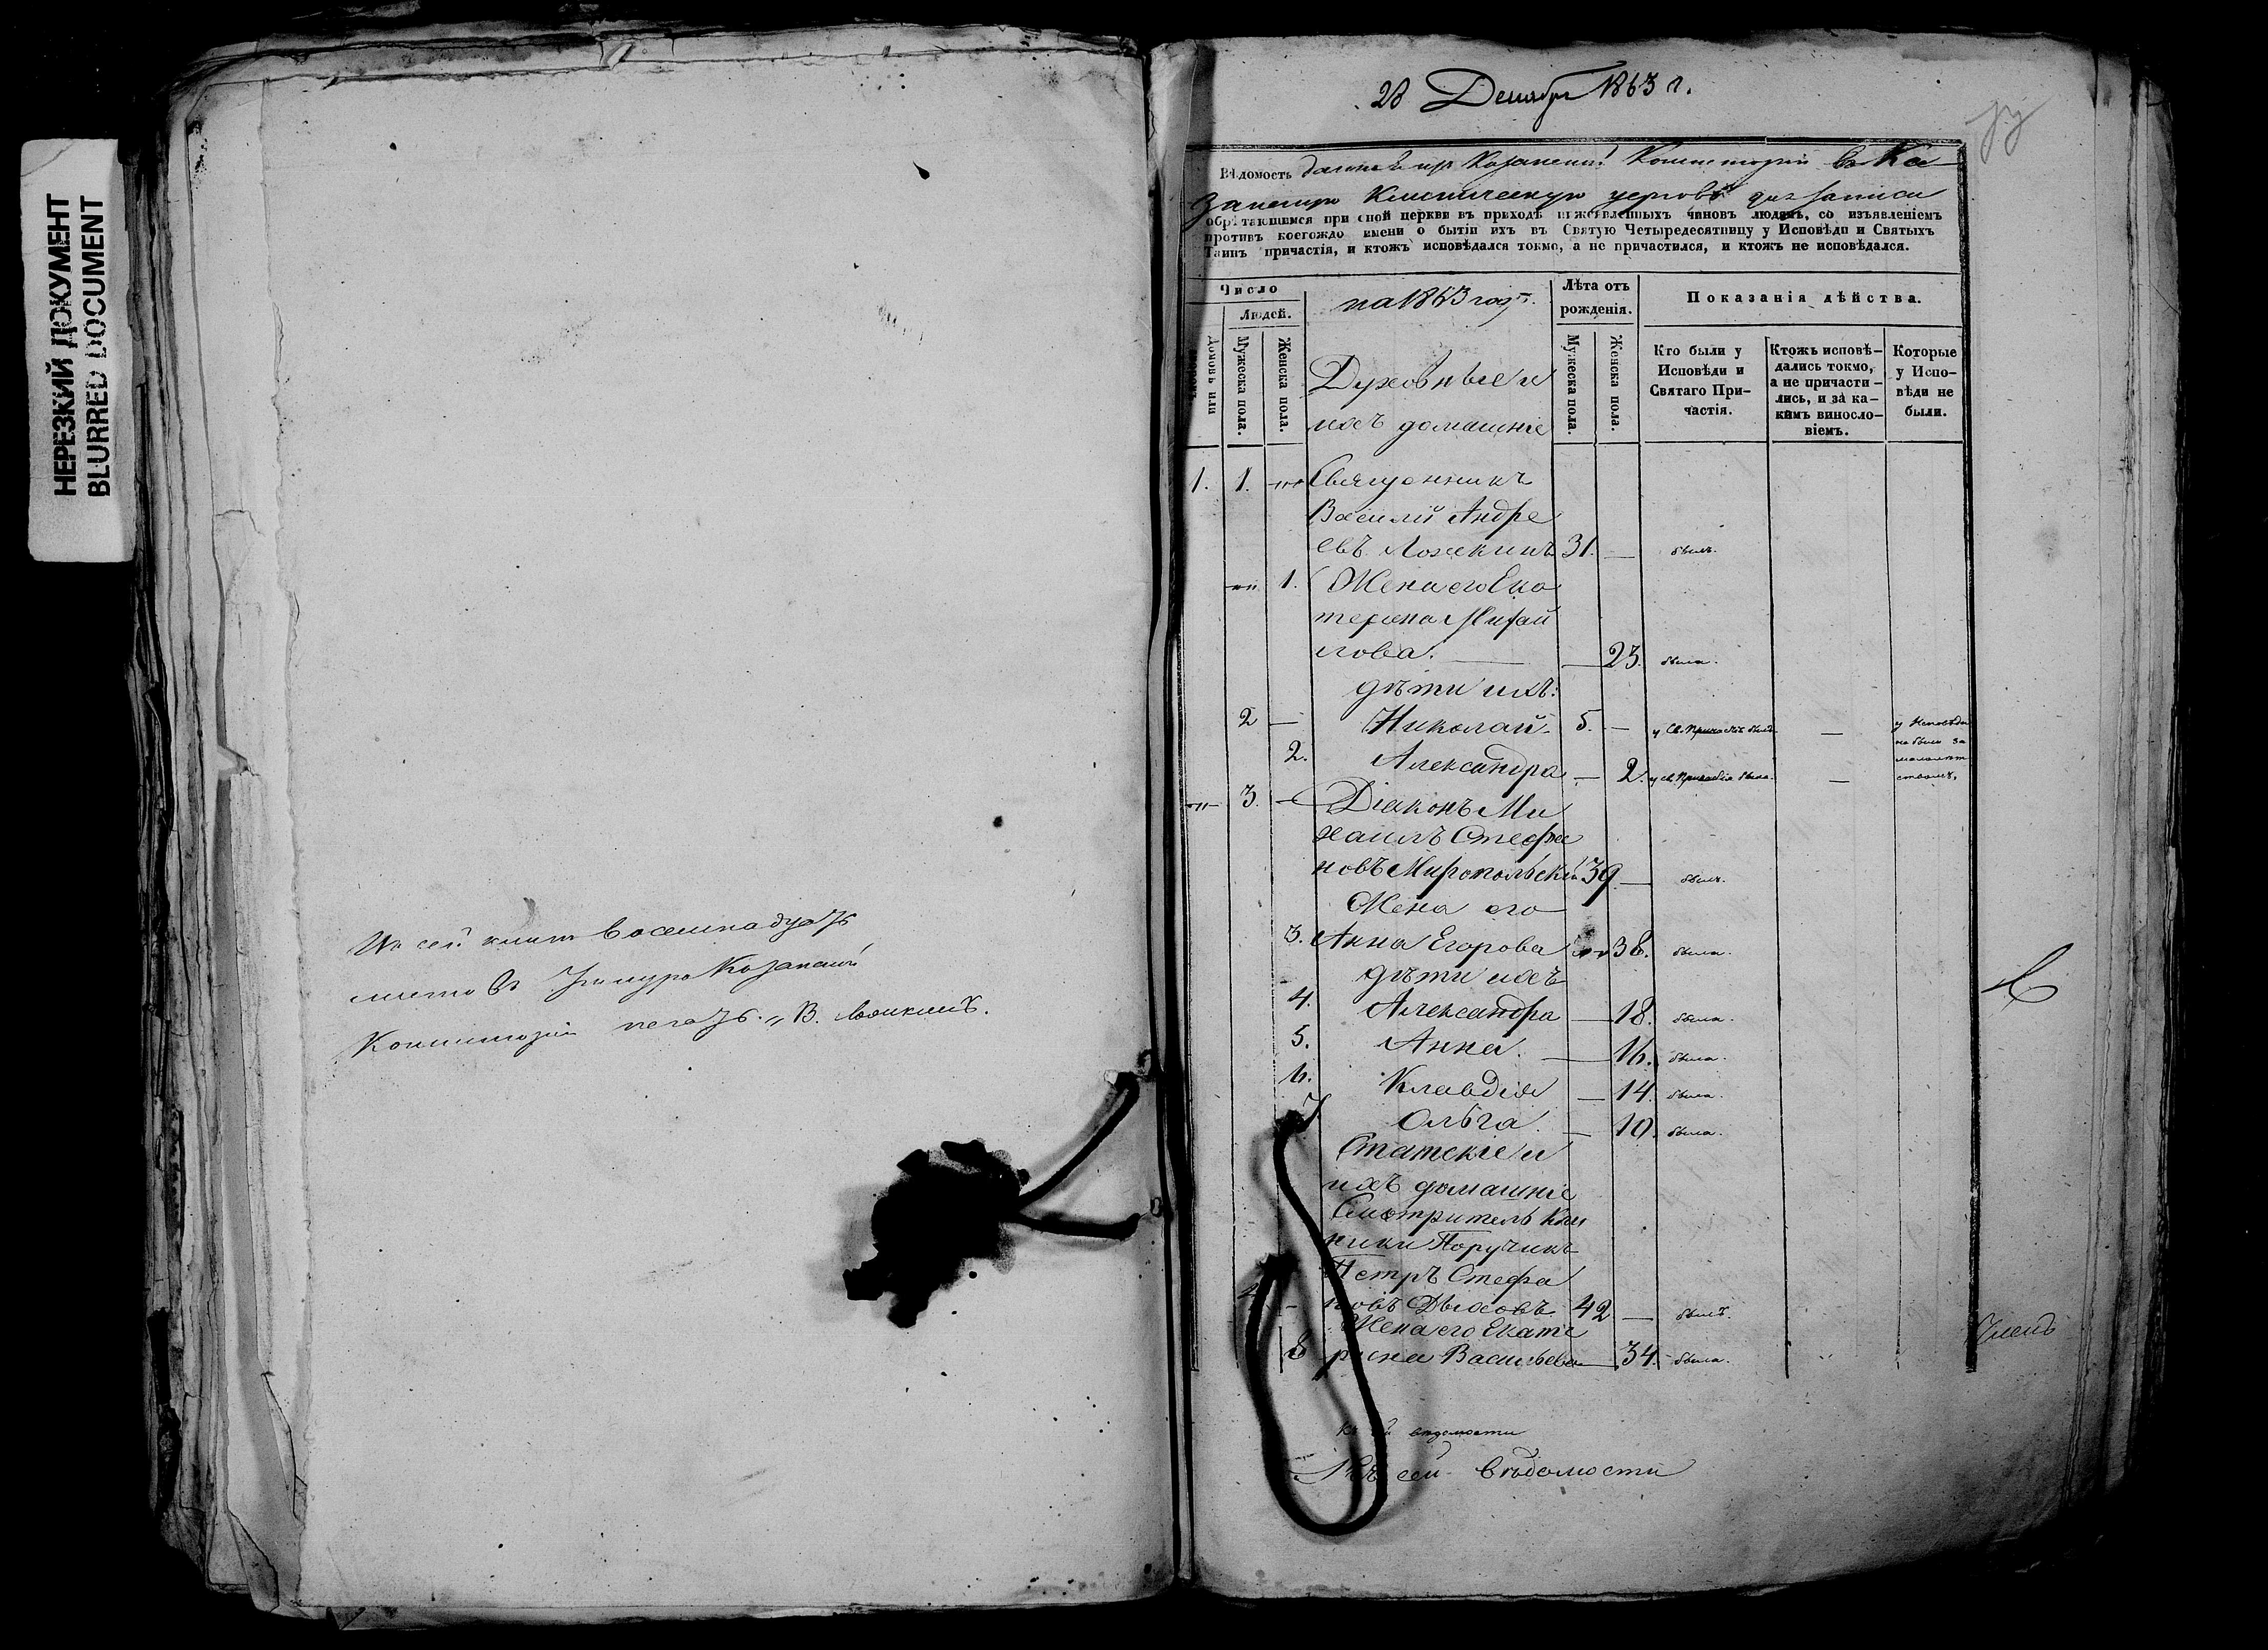 НЕРЕЗКИЙ ДОКУМЕНТ
BLURRED DOCUMENT
восемнадцать
Казанской
Консисторіи печать. В.
28 Декабря 1863 г.
Вѣдомость данная изъ Казанской Консисторіи въ Ка-
занскую Клиническую церковь для записи
обрѣтающимся при оной церкви въ приходѣ нижеявленныхъ чиновъ людямъ, со изъявленіемъ
противъ коегождо имени о бытіи ихъ въ Святую Четыредесятницу у Исповѣди и Святыхъ
Таинъ причастія, и ктожъ исповѣдался токмо, а не причастился, и ктожъ не исповѣдался.
Число
Людей.
Домовъ или
Мужеска пола.
Женска пола.
на 1863 годъ.
Лѣта отъ
рожденія.
Мужеска пола.
Женска пола.
Показанія дѣйства.
Кто были у
Исповѣди и
Святаго При-
частія.
Ктожъ исповѣ-
дались токмо,
а не причасти-
лись, и за ка-
кимъ винословіемъ.
Которые
у Испо-
вѣди не
были.
Духовные и
ихъ домашніе
1. 1. Священникъ
Василій Андре
евъ Ложкинъ 31. — былъ.
1. Жена его Ека
терина Михай
лова. — 23. была.
дѣти ихъ:
2 — Николай 5. — у Св. Причастія былъ — у Исповѣди
не были за
малолѣт
ствомъ.
2. Александра — 2. у св. Причастія была. —
3. — Діаконъ Ми
хаилъ Стефа
новъ Миропольскій 39. — былъ.
Жена его
3. Анна Егорова 38. была.
дѣти ихъ
4. Александра — 18. была.
5. Анна. — 16. была.
6. Клавдія — 14. была.
7 Ольга. — 10. была.
Статскіе и
ихъ домашніе
Смотритель Кли
ники Поручикъ
Петръ Стефа
4 — новъ Дысовъ 42 — былъ.
Жена его Екате
8 рина Васильева — 34. была.
Членъ
къ сей вѣдомости
Къ сей вѣдомости